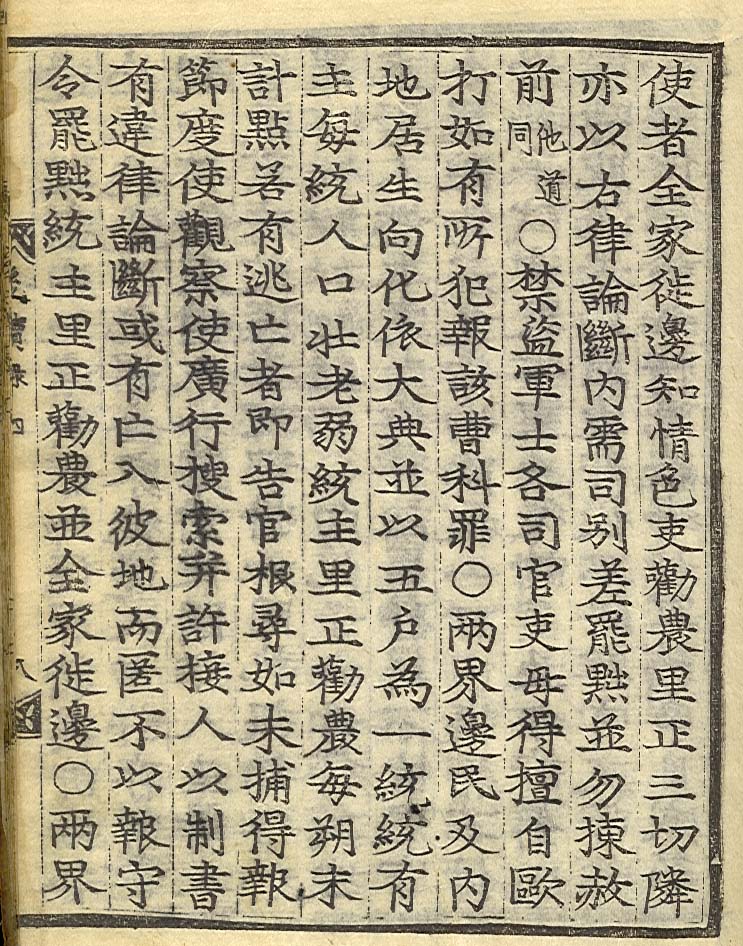 使者全家徙邊知情色吏勸農里正三切隣
亦以右律論斷內需司別差罷黜並勿揀赦
前他道同○禁盜軍士各司官吏毋得擅自歐
打如有所犯報該曹科罪○兩界邊民及內
地居生向化依大典並以五户為一統統有
主每統人口壯老弱統主里正勸農每朔末
計點若有逃亡者即告官根尋如未捕得報
節度使觀察使廣行搜索并許接人以制書
有違律論斷或有亡入彼地而匿不以報守
令罷黜統主里正勸農並全家徙邊○兩界
後續錄 四
八